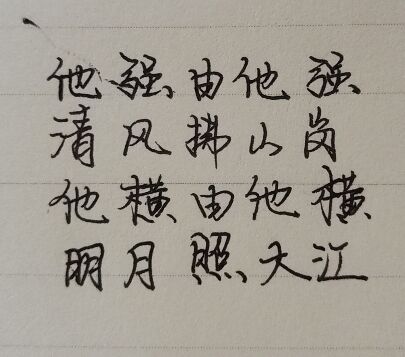 他强由他强
清风拂山岗
他横由他横
明月照大江